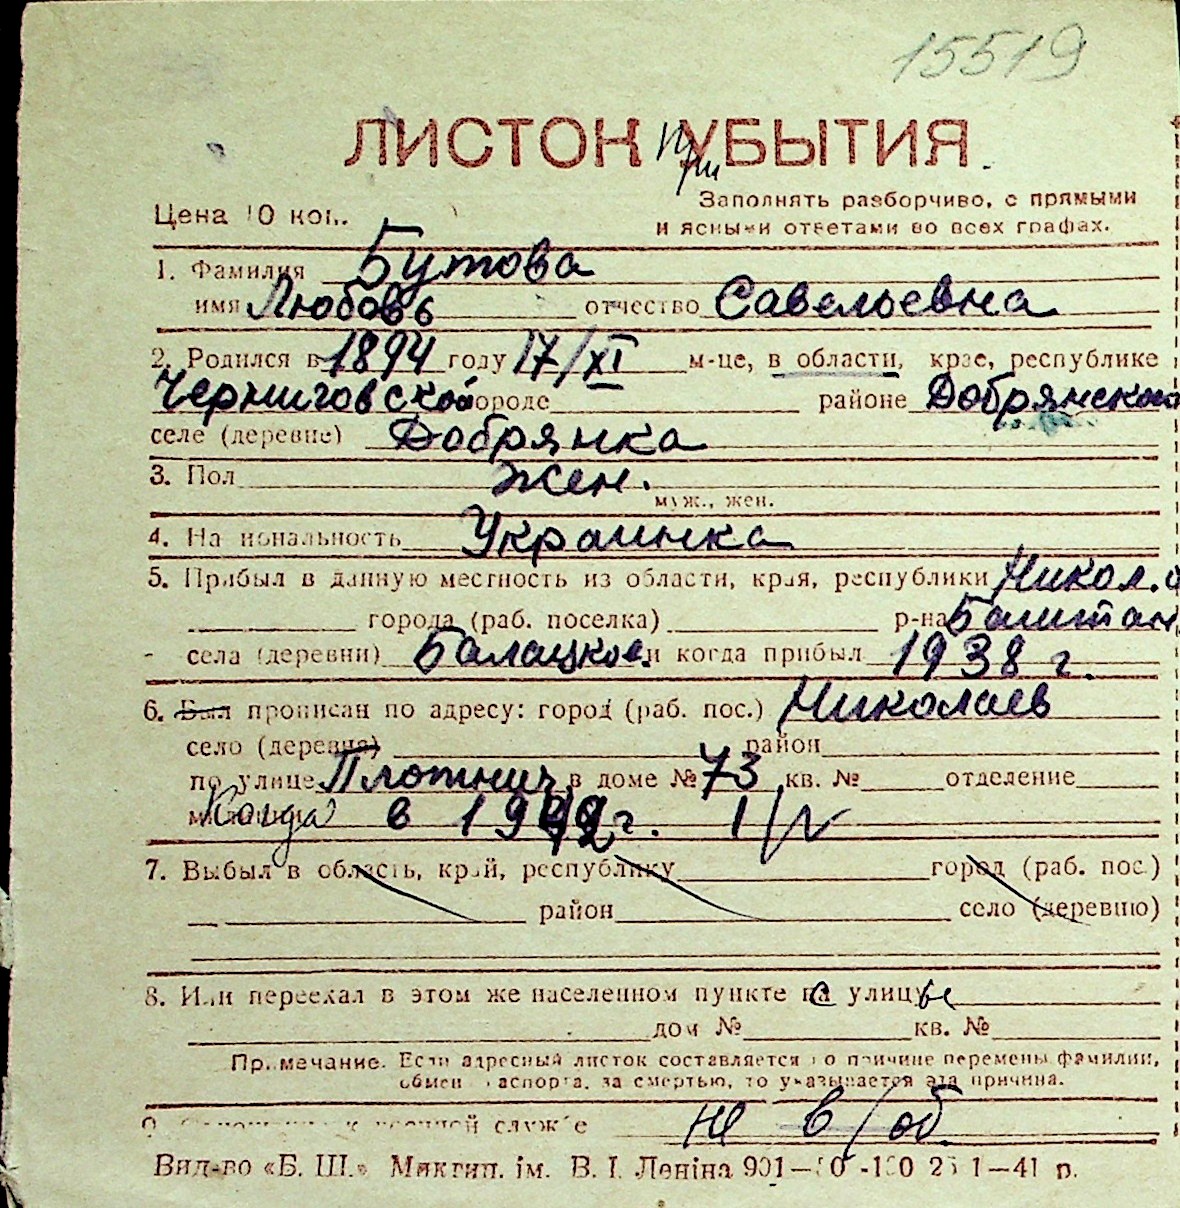 15519
ЛИСТОК при УБЫТИЯ
Заполнять разборчиво, с прямыми
Цена 10 коп. и ясными ответами во всех графах.
1. Фамилия Бутова
имя Любовь отчество Савельевна
2. Родился в 1894 году 17/XI м-це, в области, крае, республике
Черниговской городе районе Добрянском
селе (деревне) Добрянка
3. Пол жен.
муж., жен.
4. Национальность Украинка
5. Прибыл в данную местность из области, края, республики Никол. о
города (раб. поселка) р-на Баштан
села (деревни) Балацкое и когда прибыл 1938 г.
6. Был прописан по адресу: город (раб. пос.) Николаев
село (деревня) район
по улице Плотнич в доме № 73 кв. № отделение
Когда в 1942 г. 1/IV
7. Выбыл в область, край, республику город (раб. пос.)
район село (деревню)
8. Или переехал в этом же населенном пункте с улицы
дом № кв. №
Примечание. Если адресный листок составляется по причине перемены фамилии,
обмен паспорта, за смертью, то указывается эта причина.
9. Отношение к военной службе не в/об
Вид-во «Б. Ш.» Миктип. ім. В. І. Леніна 901— 1—41 р.